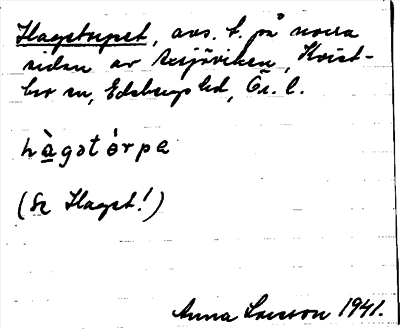 Hagstorpet, avs. t. på norra
sidan av Resjöviken, Kvist-
bro sn, Edsbergs hd, Ör. l.
hàgstórpe
(Se Hagst!)
Anna Larsson 1941.